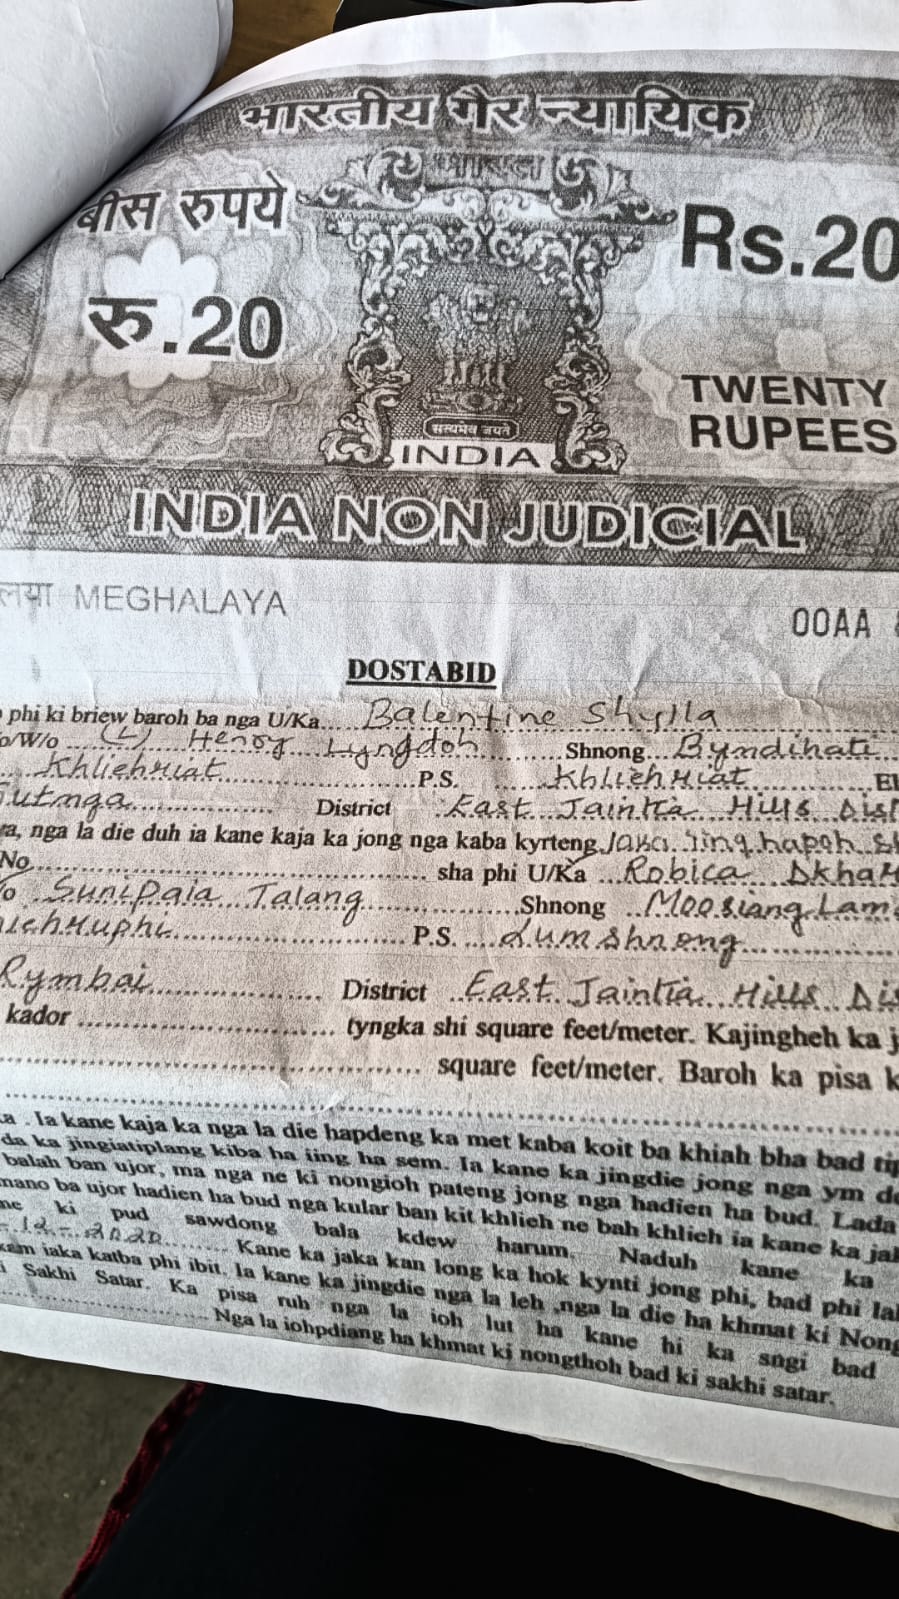 भारतीय गैर न्यायिक
भारत
बीस रुपये
Rs.20
रु.20
TWENTY
RUPEES
सत्यमेव जयते
INDIA
INDIA NON JUDICIAL
MEGHALAYA
00AA
DOSTABID
phi ki briew baroh ba nga U/Ka.....Balentine Shylla
o/W/o .....(L) Henry Lyngdoh.........Shnong...Byndihati
....Khliehriat..................P.S. .......Khliehriat.........El
Sutnga.................. District ..East Jaintia Hills Dis
, nga la die duh ia kane kaja ka jong nga kaba kyrteng Jaka Iing hapoh
No.......................................... sha phi U/Ka ...Robica Dkha
o Sunipaia Talang....................Shnong ..Moosiang Lam
.......................... P.S. ....Lumshnong............
Rymbai........................ District ..East Jaintia Hills Dis
kador .................................. tyngka shi square feet/meter. Kajingheh ka j
....................................................... square feet/meter. Baroh ka pisa k
................................................................................
a . Ia kane kaja ka nga la die hapdeng ka met kaba koit ba khiah bha bad tip
da ka jingiatiplang kiba ha iing ha sem. Ia kane ka jingdie jong nga ym d
balah ban ujor, ma nga ne ki nongioh pateng jong nga hadien ha bud. Lada
mano ba ujor hadien ha bud nga kular ban kit khlieh ne bah khlieh ia kane ka jak
ne ki pud sawdong bala kdew harum. Naduh kane ka
-12-2020.......... Kane ka jaka kan long ka hok kynti jong phi, bad phi lah
kam iaka katba phi ibit. Ia kane ka jingdie nga la leh ,nga la die ha khmat ki Nong
i Sakhi Satar. Ka pisa ruh nga la ioh lut ha kane hi ka sngi bad
................................ Nga la iohpdiang ha khmat ki nongthoh bad ki sakhi satar.